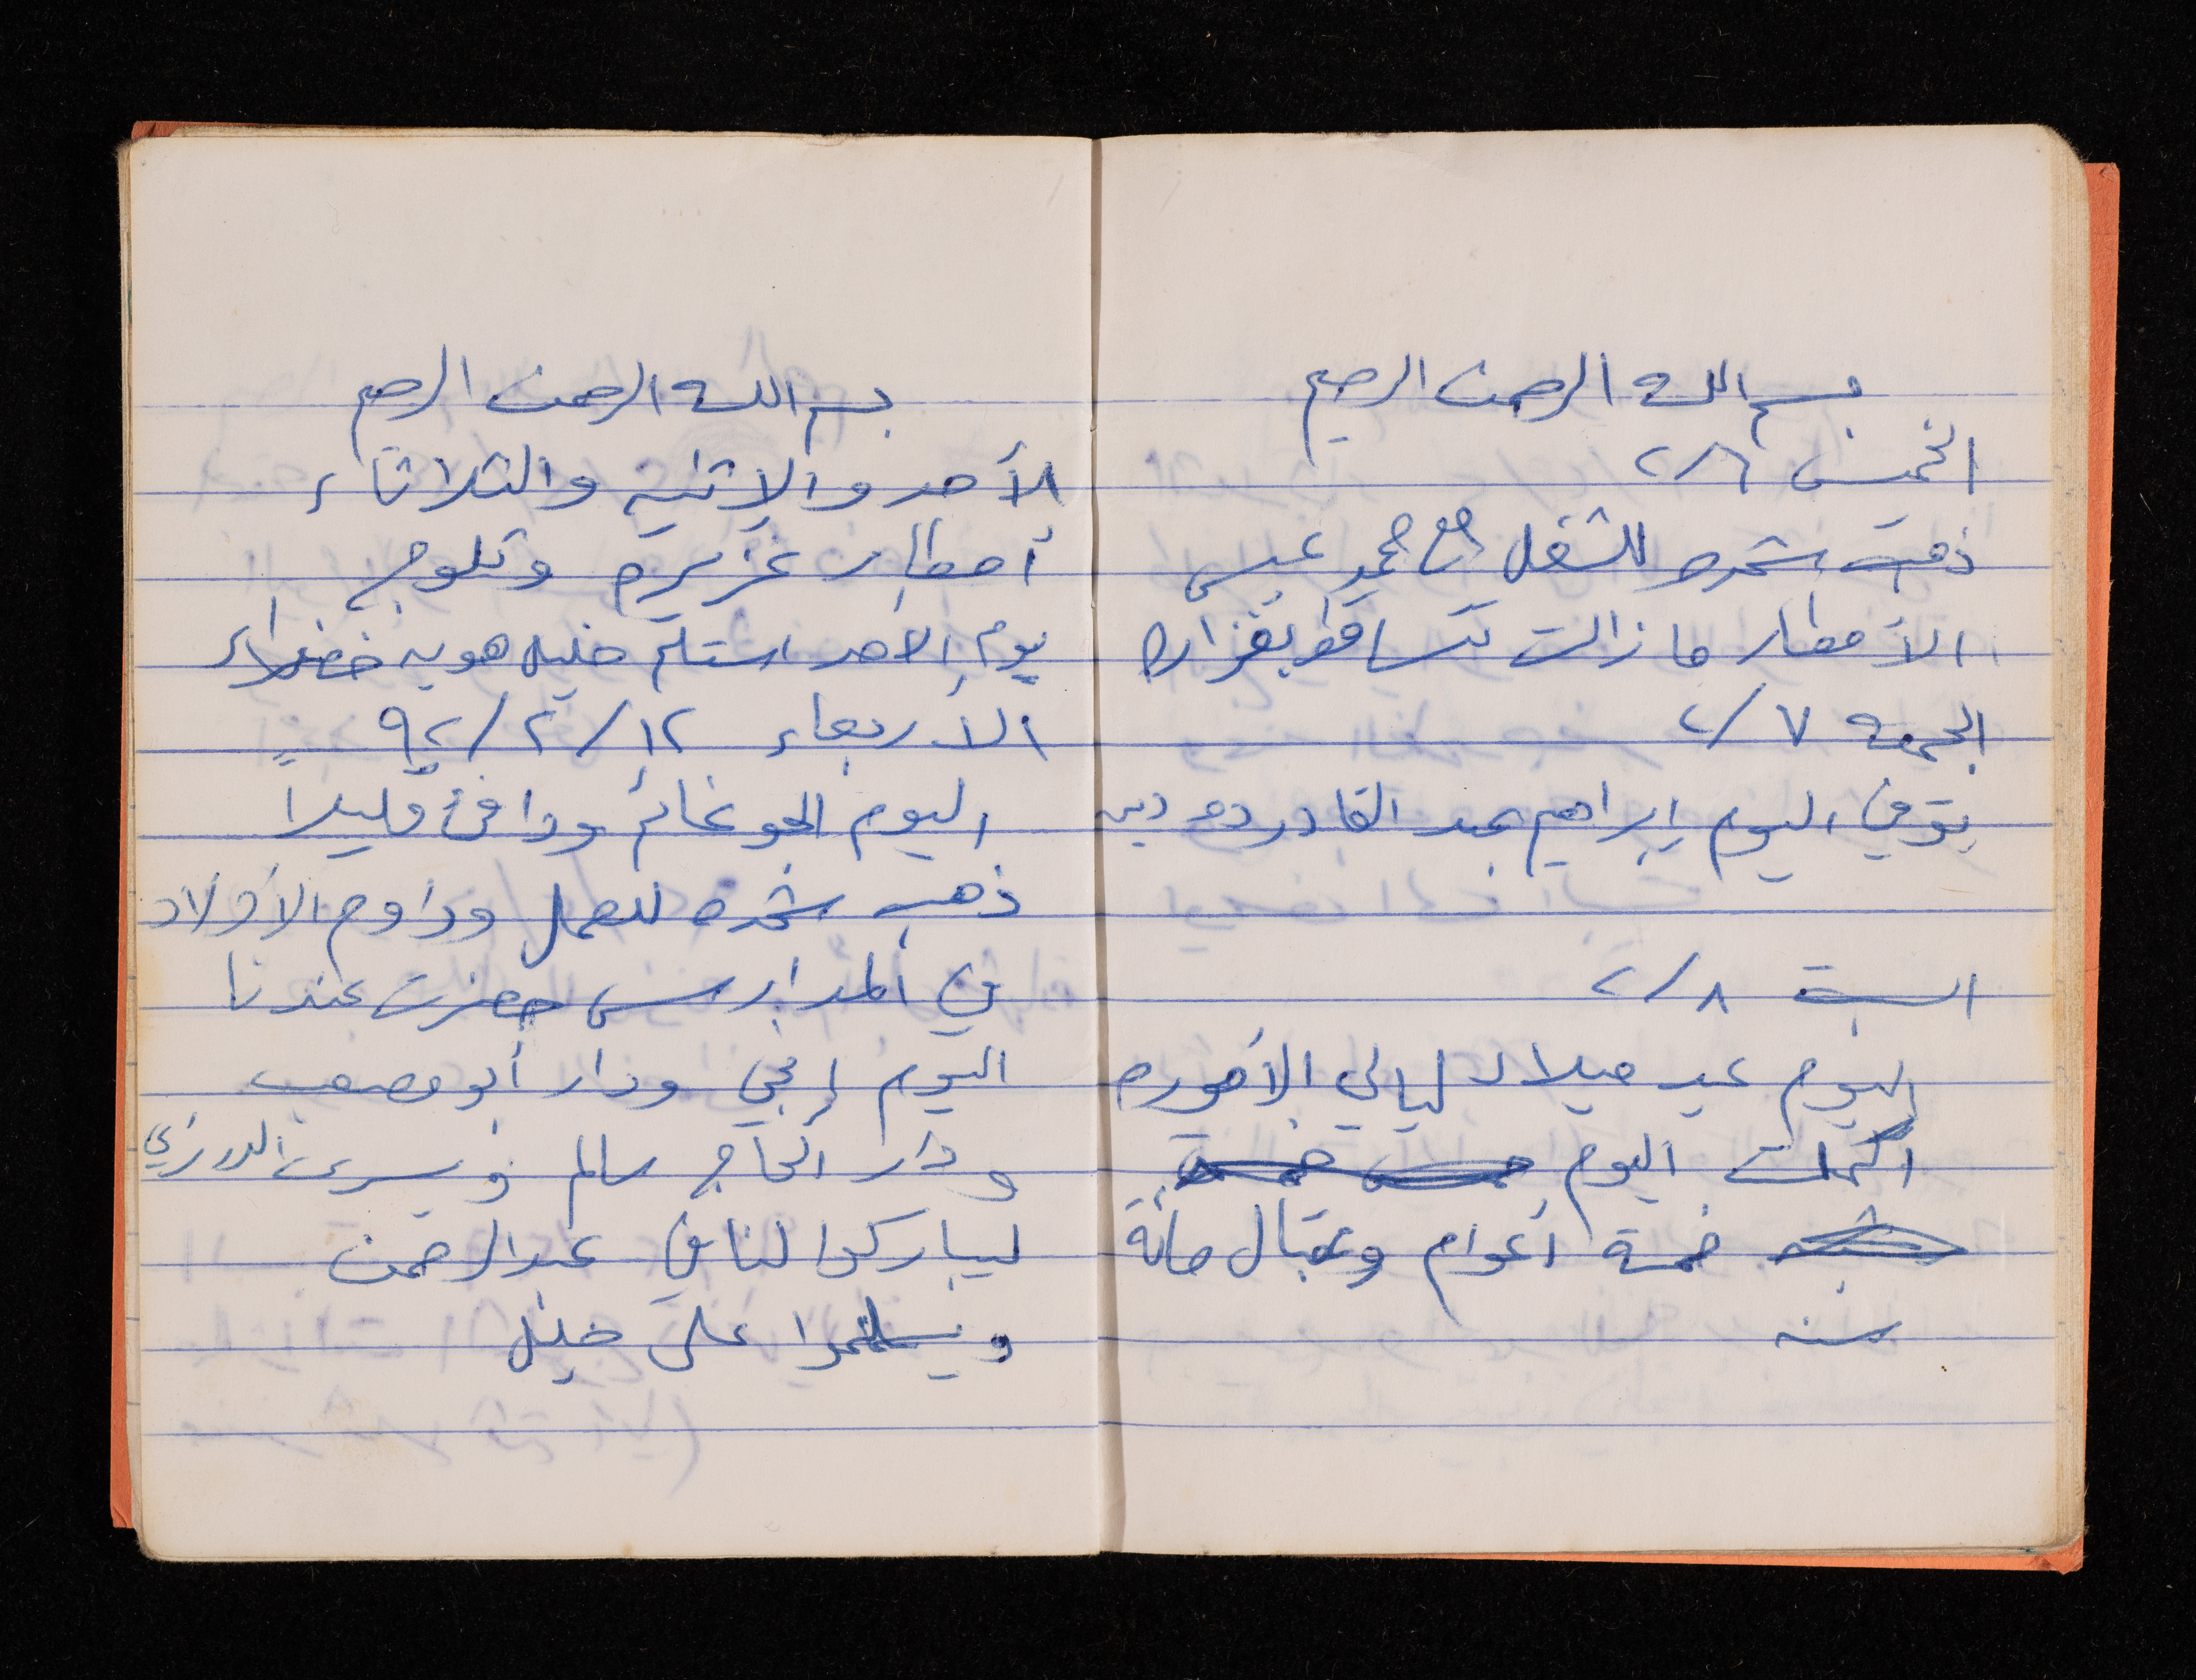 بسم الله الرحمن الرحيم
الخميس ٢/٦
ذهبت شحده للشغل مع محمد عيسى
الأمطار ما زالت تتساقط بغزاره
الجمعه ٢/٧
توفي اليوم إبراهيم عبد القادر دودين
السبت ٢/٨
اليوم عيد ميلاد ليالي الأموره
اكملت اليوم
خمسة أعوام وعقبال مائة
سنه
بسم الله الرحمن الرحيم
الأحد والإثنين والثلاثاء
أمطار غزيره وثلوج
يوم الاحد استلم خليل هويه خضراء
الأربعاء ٩٢/٢/١٢
اليوم الجو غائم ودافئ قليلاً
ذهب شحده للعمل وداوم الأولاد
في المدارس حضرت عندنا
اليوم إمي ودار أبو مصعب
ودار الحاج سالم ويسرى
ليباركوا لنا في عبد الرحمن
ويسلموا على خليل